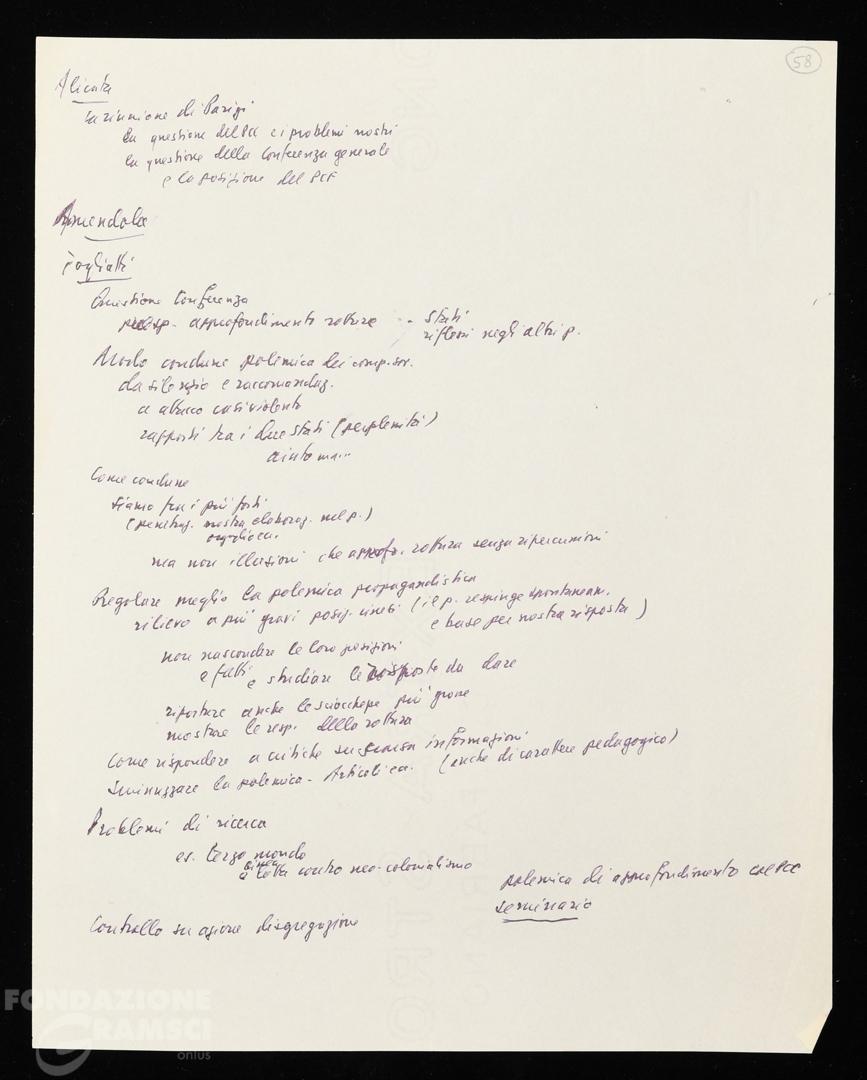 58
Alicata
La riunione di Parigi
La questione del PCC e i problemi nostri
La questione della Conferenza generale
e la posizione del PCF
Amendola
Togliatti
Questione Conferenza
resp. approfondimento rotture - stati
riflessi negli altri p.
Modo condurre polemica dei comp. sov.
da silenzio e raccomandaz.
a attacco così violento
rapporti tra i due Stati (perplessità)
aiuto ma...
Come condurre
siamo tra i più forti
(penetraz. nostra elaboraz. nel p.)
ma non illusioni che approf. rottura senza ripercussioni
Regolare meglio la polemica propagandistica
rilievo a più gravi posiz. cinesi (il p. respinge spontaneam.
e base per nostra risposta)
non nascondere le loro posizioni
e fatti e studiare le risposte da dare
riportare anche le sciocchezze più grosse
mostrare le resp. della rottura
Come rispondere a critiche su scarsa informazioni
Sminuzzare la polemica - Articoli ecc. (anche di carattere pedagogico)
Problemi di ricerca
es. terzo mondo
e lotta contro neo-colonialismo
polemica di approfondimento col PCC
seminario
Controllo su azione disgregazione
FONDAZIONE
GRAMSCI
onlus